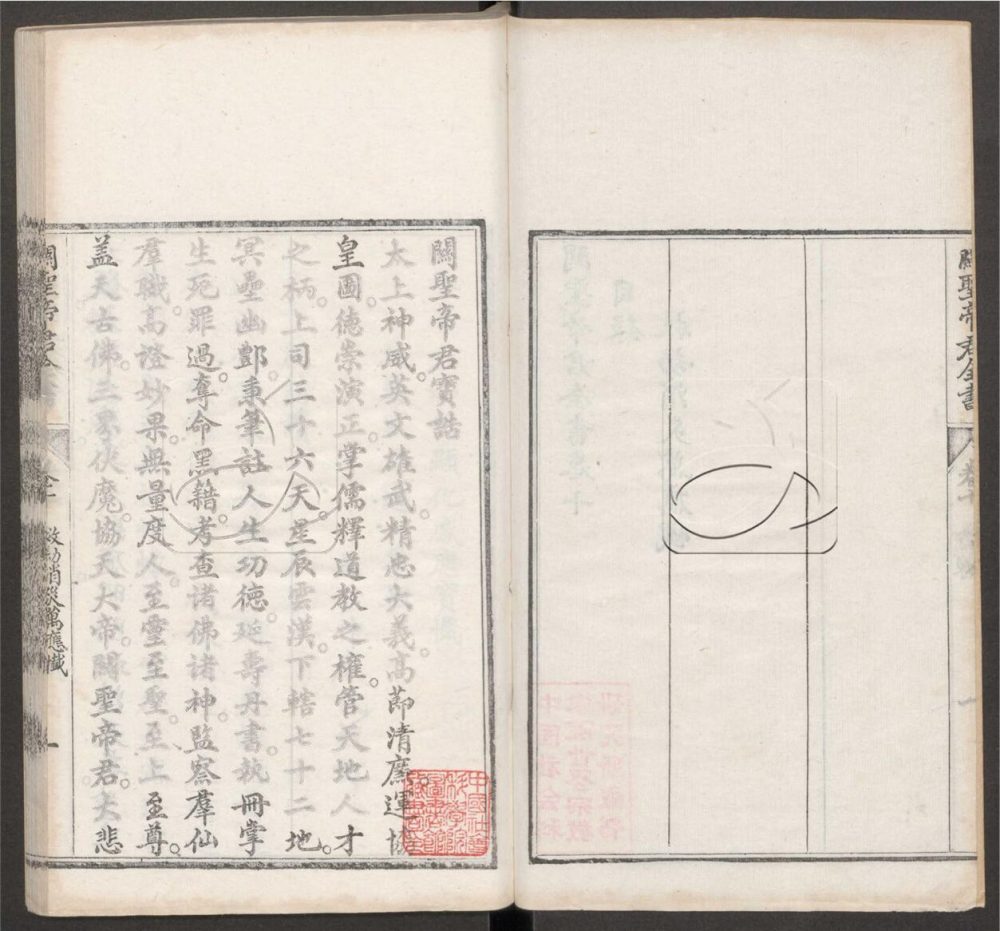 關聖帝君全書
卷十
一
關聖帝君寶誥
太上神威。英文雄武。精忠大義。高節清廉。運協
皇圖。德崇演正。掌儒釋道教之權。管天地人才
之柄。上司三十六天。星辰雲漢。下轄七十二地。
冥壘幽酆。秉筆註人生功德。延壽丹書。執冊掌
生死罪過。奪命黑籍。考查諸佛諸神。監察羣仙
羣職。高證妙果。無量度人。至靈至聖。至上至尊。
蓋天古佛。三界伏魔。協天大帝。關聖帝君。大悲
關聖帝君
救劫消災萬應懺
一